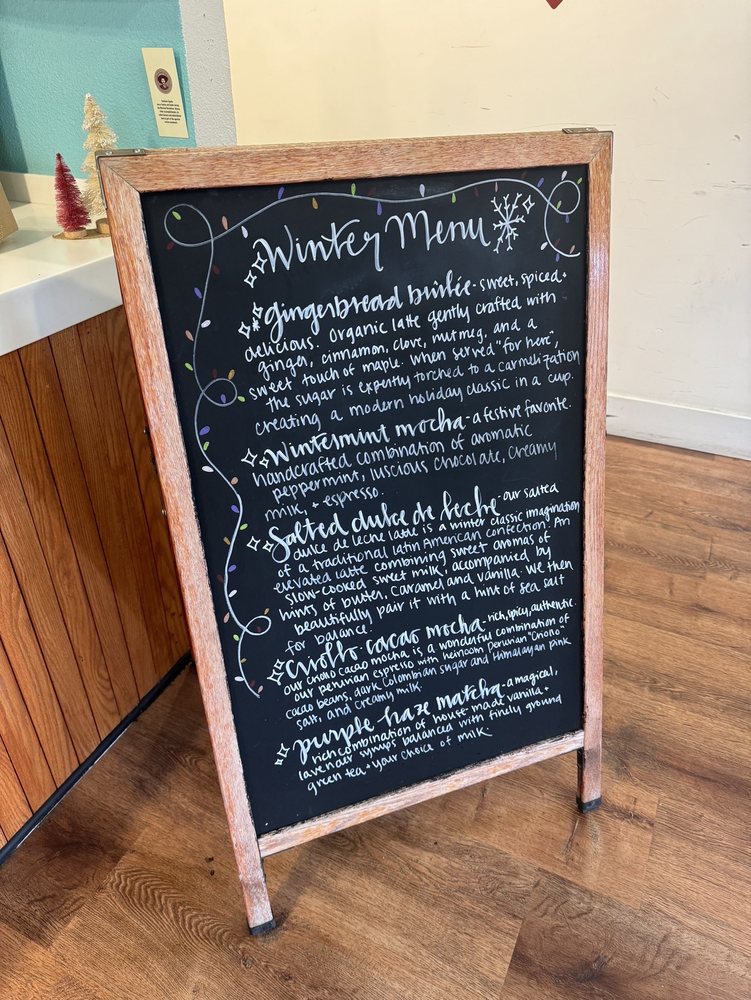 Winter Menu
gingerbread brûlée - sweet, spiced +
delicious. Organic latte gently crafted with
ginger, cinnamon, clove, nutmeg, and a
sweet touch of maple. When served "for here",
the sugar is expertly torched to a carmelization
creating a modern holiday classic in a cup.
Wintermint mocha - a festive favorite.
handcrafted combination of aromatic
peppermint, luscious chocolate, creamy
milk, + espresso.
Salted dulce de leche - our salted
dulce de leche latte is a winter classic imagination
of a traditional latin American confection. An
elevated latte combining sweet aromas of
slow-cooked sweet milk, accompanied by
hints of butter, caramel and vanilla. We then
beautifully pair it with a hint of sea salt
for balance.
Criollo cacao mocha - rich, spicy, authentic.
our criollo cacao mocha is a wonderful combination of
our peruvian espresso with heirloom Peruvian "Criollo"
cacao beans, dark Colombian sugar and Himalayan pink
salt, and creamy milk.
purple haze matcha - a magical,
rich combination of house-made vanilla +
lavender syrups balanced with finely ground
green tea + your choice of milk